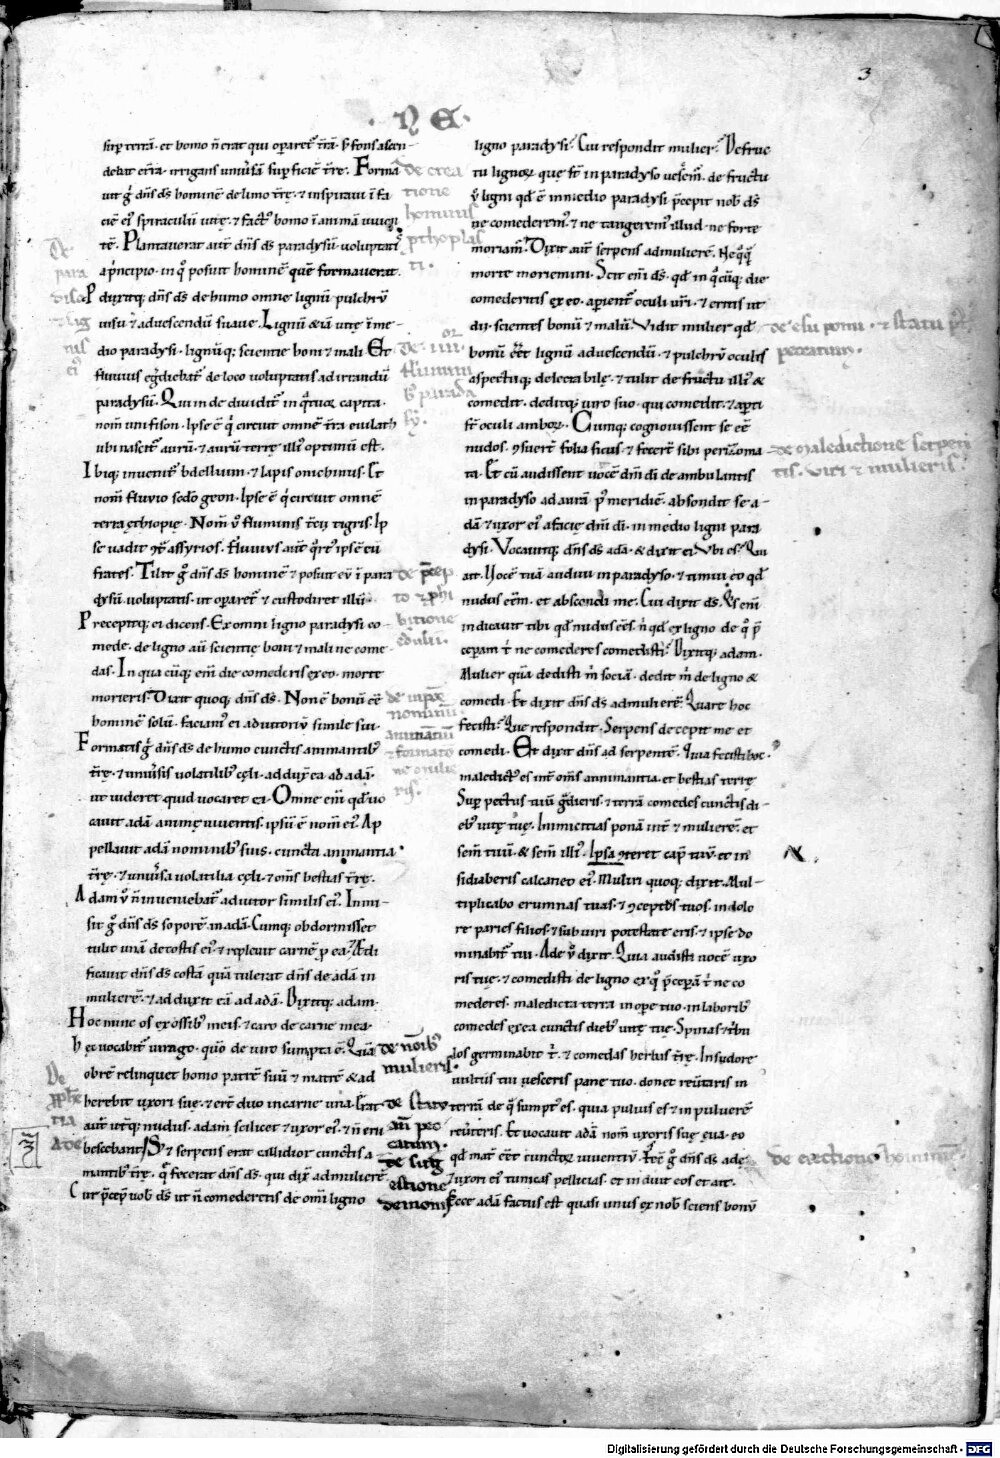 3
· N E ·
sup̄ terrā · et homo n̄ erat qui oꝑaret᷑ t̄rā · s; fons ascen-
debat e t̄ra · irrigans uniu̾sā sup̄ficiē t̄rę · Forma
uit g̊ dn̄s ds̄ hominē de limo t̄rę · & inspirauit ī fa
ciē ei᷒ spiraculū uitę · & fact᷒ ē homo ī animā uiuen
tē · Plantauerat aut̄ dn̄s ds̄ paradysū uoluptatis
a pⁱncipio · in q̊ posuit hominē quē formauerat ·
Pduxitq; dn̄s ds̄ de humo omne lignū pulchrū
uisu & ad uescendū suaue · Lignū & iā uitę ī me-
dio paradysi · lignūq; scientie boni & mali · Et
fluuius egdiebat᷑ de loco uoluptatis ad irrandū
paradysū · Qui inde diuidit᷑ in q̊tuor capita ·
nom̄ uni fison · Ipse ē qⁱ circuit omnē t̄ra euilath
ubi nascit᷑ aurū · & aurū terrę illi᷒ optimū est ·
Ibiq; inuenit᷑ bdellium · & lapis onichinus · Et
nom̄ fluuio sedo geon · Ipse ē qⁱ circuit omnē
terrā ęthiopię · Nom̄ ů fluminis t̄cii tigris · Ip
se uadit 9t̄ assyrios · Fluuius aut̄ qⁱrt᷒ ipse ē eu
frates · Tulit g̊ dn̄s ds̄ hominē & posuit eū ī para
dysū uoluptatis · ut oꝑaret᷑ & custodiret illū ·
Precepitq; ei dicens · Ex omni ligno paradysi co-
mede · de ligno aū scientię boni & mali ne come
das · In qua cūq; em̄ die comederis ex eo · morte
morieris · Dixit quoq; dn̄s ds̄ · Non ē bonū eē
hominē solū · faciam᷒ ei adiutoriū simile sui
Formatis g̊ dn̄s ds̄ de humo cunctis animantib᷒
t̄rę · & uniu̾sis uolatilib᷒ cęli · adduxit ea ad adā ·
ut uideret quid uocaret ea · Omne em̄ qd̄ uo
cauit adā animę uiuentis · ipsū ē nom̄ ei᷒ · Ap
pellauit adā nominib᷒ suis · cuncta animantia
t̄rę · & uniu̾sa uolatilia cęli · & om̄s bestias t̄rę ·
Adam ů n̄ inueniebat᷑ adiutor similis ei᷒ · Inmi-
sit g̊ dn̄s ds̄ soporē in adā · Cumq; obdormisset
tulit unā de costis ei᷒ · & repleuit carnē ꝓ ea · Ædi
ficauit dn̄s ds̄ costā quā tulerat dn̄s de adā in
mulierē · & adduxit eā ad adā · Dixitq; adam ·
Hoc nunc os ex ossib᷒ meis · & caro de carne mea ·
hęc uocabit᷑ uirago · qm̄ de uiro sumpta ē · Quā
obrē relinquet homo patrē suū & matrē & ad
herebit uxori suę · & er̄t duo in carne una · Erāt
aut̄ ut̄q; nudus · adam scilicet & uxor ei᷒ · & n̄ eru
bescebant · S; & serpens erat callidior cunctis a
mantib᷒ t̄rę · q̄ fecerat dn̄s ds̄ · qui dix̄ ad mulierē
Cur p̄cep̄ uob̄ ds̄ ut n̄ comederetis de om̄i ligno
de crea
tione
hominis
ꝓthoplas
ti ·
De
para
diso
& lig
nis
ei᷒
de · IIII · or
fluminib᷒
parada
sy ·
de p̄cep
to & ꝓhi
bitione
edulii ·
de inpo
nominū
animātiū
& formatio
ne mulie
ris ·
de noīb᷒
mulieris ·
De
ꝓphe
tia
Ade
de statu
an̄ pec
catum ·
de sug
estione
demonis
ligno paradysi · Cui respondit mulier · De fruc
tu lignoꝝ que st̄ in paradyso uescim̄ · de fructu
ů ligni qd̄ ē in medio paradysi p̄cepit nob̄ ds̄
ne comederem᷒ · & ne tangerem᷒ illud · ne forte
moriam̄ · Dixit aut̄ serpens ad mulierē · Neq̄q̄
morte moriemini · Scit em̄ ds̄ · qd̄ in q̊cūq; die
comederitis ex eo · aꝑient᷑ oculi ur̄i · & eritis ut
dii · scientes bonū & malū · Vidit mulier qd̄
bonū eēt lignū ad uescendū · & pulchrū oculis
aspectuq; delectabile · & tulit de fructu illi᷒ &
comedit · deditq; uiro suo · qui comedit · & aꝑti
st̄ oculi amboꝝ · Cumq; cognouissent se eē
nudos · 9suer̄t folia ficus · & fecer̄t sibi perizoma
ta · Et cū audissent uocē dn̄i di de ambulantis
in paradyso ad aurā p᷒ meridiē · abscondit se a-
dā & uxor ei᷒ a facię dn̄i di · in medio ligni para
dysi · Vocauitq; dn̄s ds̄ adā · & dixit ei · Vbi es? Qui
ait · Vocē tuā audiui in paradyso · & timui eo qd̄
nudus eēm · et abscondi me · Cui dixit ds̄ · Qⁱs em̄
indicauit tibi qd̄ nudus eēs · n̄ qd̄ ex ligno de q̊ p̄
cepam tⁱ ne comederes comedisti? Dixitq; adam ·
Mulier quā dedisti m̄ sociā · dedit m̄ de ligno &
comedi · Et dixit dn̄s ds̄ ad mulierē · Quare hoc
fecisti? Que respondit · Serpens decepit me et
comedi · Et dixit dn̄s ad serpentē · Quia fecisti hoc ·
maledict᷒ es int̄ om̄s animantia · et bestias terrę
Sup̄ pectus tuū gdieris · & terrā comedes cunctis di-
eb᷒ uitę tuę · Inimicitias ponā int̄ te & mulierē · et
sem̄ tuū · & sem̄ illi᷒ · Ipsa 9teret cap̄ tuū · et in
sidiaberis calcaneo ei᷒ · Muliri quoq; dixit · Mul-
tiplicabo erumnas tuas · & 9cept᷒ tuos · in dolo
re paries filios · & sub uiri potestate eris · & ipse do
minabit᷑ tui · Ade ů dixit · Quia audisti uocē uxo
ris tuę · & comedisti de ligno ex q̊ p̄cepā tⁱ ne co
mederes · maledicta terra in oꝑe tuo · in laborib᷒
comedes ex ea cunctis dieb᷒ uitę tuę · Spinas & tⁱbu
los germinabit tⁱ · & comedas herbas t̄rę · In sudore
uultus tui uesceris pane tuo · donec reu̾taris in
terrā de q̄ sumpt᷒ es · quia puluis es & in puluerē
reu̾teris · Et uocauit adā nom̄ uxoris suę eua · eo
qd̄ mat̄ eēt cunctoꝝ uiuentiū · Fecit g̊ dn̄s ds̄ adę
& uxori ei᷒ tunicas pellicias · et induit eos et ait ·
Ecce adā factus est quasi unus ex nob̄ sciens bonū
de esu pomi · & statu p᷒
peccatum ·
de Maledictione serpen
tis · viri & mulieris ·
de eiectione hominis
Digitalisierung gefördert durch die Deutsche Forschungsgemeinschaft · DFG